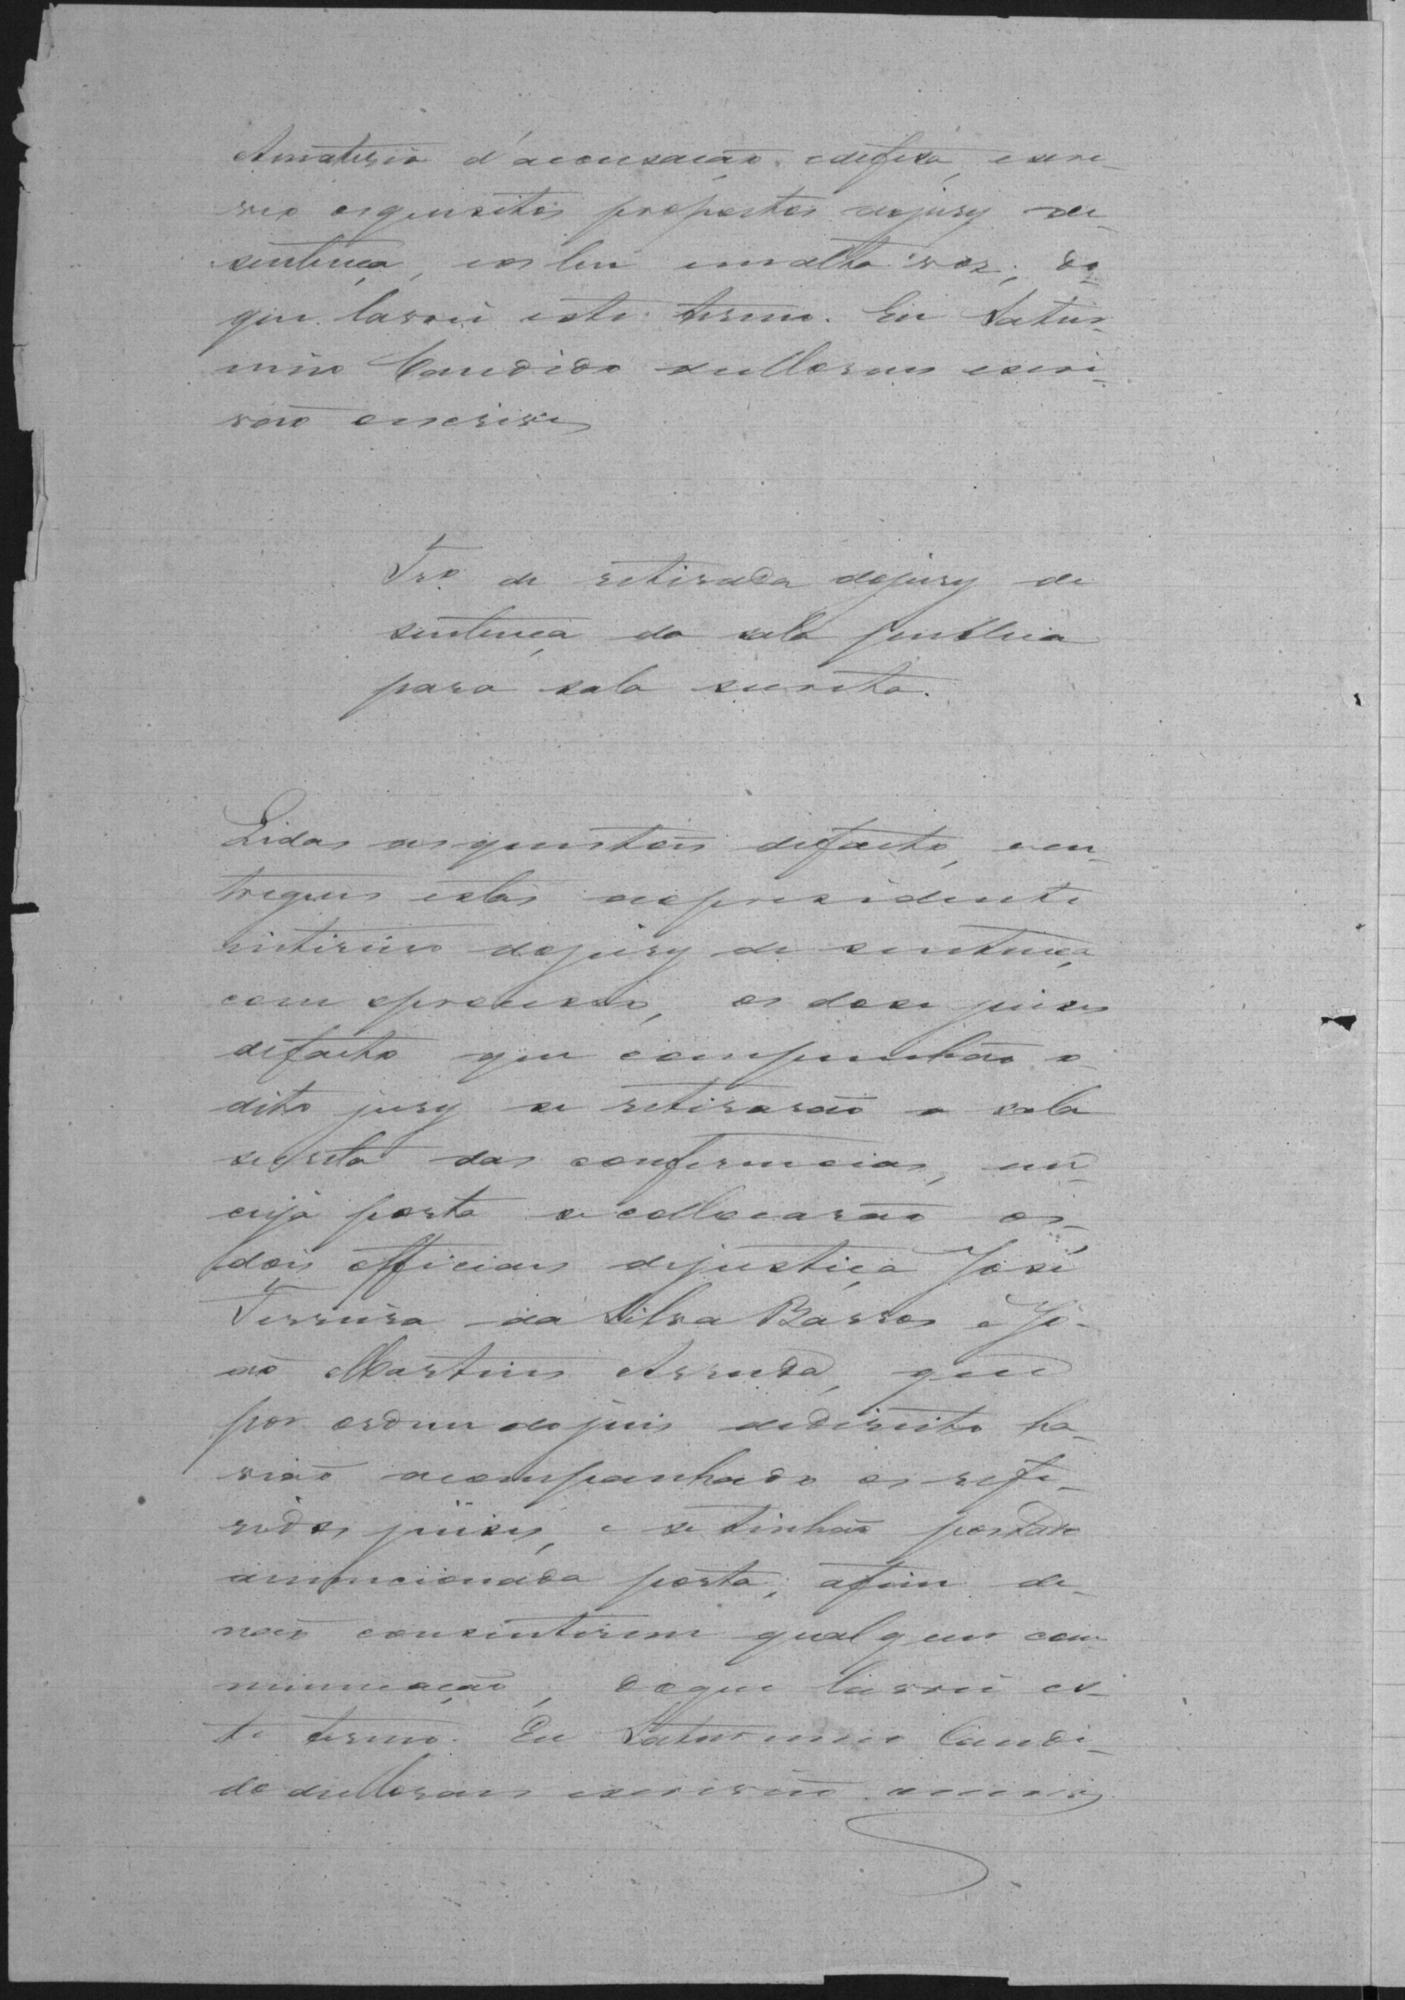 A materia d'accusação e defeza, escre-
veo os quisitos propostos ao jury de
sentença, e os leu em alta voz; do
que lavrei este termo. Eu Satur-
nino Candido de Moraes escri-
vão o escrevi

Tr.o de retirada do jury de
sentença da sala publica
para sala secreta.

Lidas as questões de facto, e en-
tregues estas ao presidente
interino do jury de sentença,
com o processo, os doze juizes
de facto que compunhão o
dito jury se retirarão a sala
secreta das conferencias, em
cuja porta se collocarão os
dois officiaes de justiça José
Ferreira da Silva Barros e Jo-
ão Martins Arruda, que
por ordem do juiz de direito ha-
vião acompanhado os refe-
ridos juizes, e se tinhão postado
a mencionada porta; afim de
não consentirem qualquer com-
municação, do que lavrei es-
te termo. Eu Saturnino Candi-
do de Moraes escrivão o escrevi